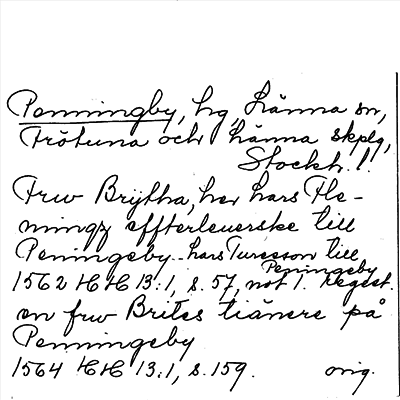 Penningby, hg, Länna sn,
Frötuna och Länna skplg,
Stockh. l.
Frw Brÿtha, her Lars Fle-
mingz effterleuerske till
Peningeby. Lars Turesson till
Peningeby
1562 HH 13:1, s. 57, not 1. Regest.
en frw Brites tiänere på
Penningeby
1564 HH 13:1, s. 159. orig.